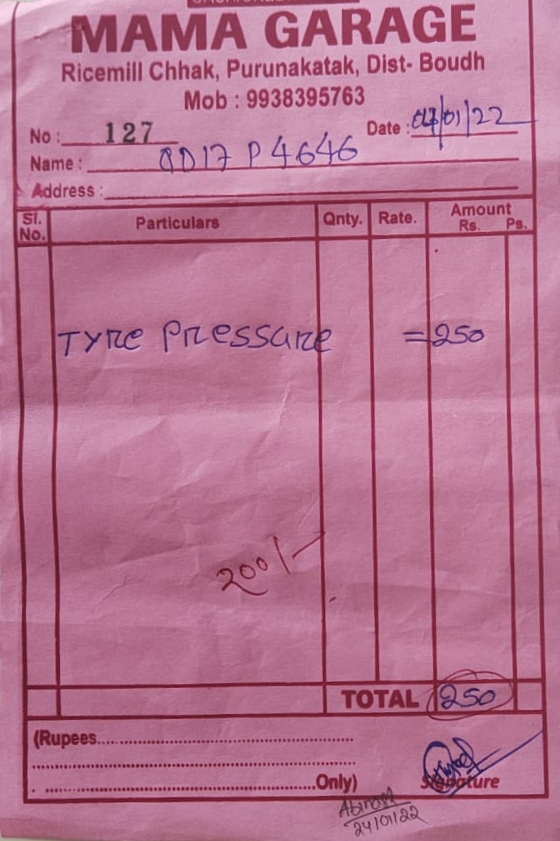 MAMA GARAGE
Ricemill Chhak, Purunakatak, Dist- Boudh
Mob : 9938395763
No : 127
Date : 07/01/22
Name : OD17 P 4646
Address :
Sl. No. Particulars Qnty. Rate. Amount Rs. Ps.
Tyre Pressure =250
200/-
TOTAL 250
(Rupees
Only) Signature
24/01/22